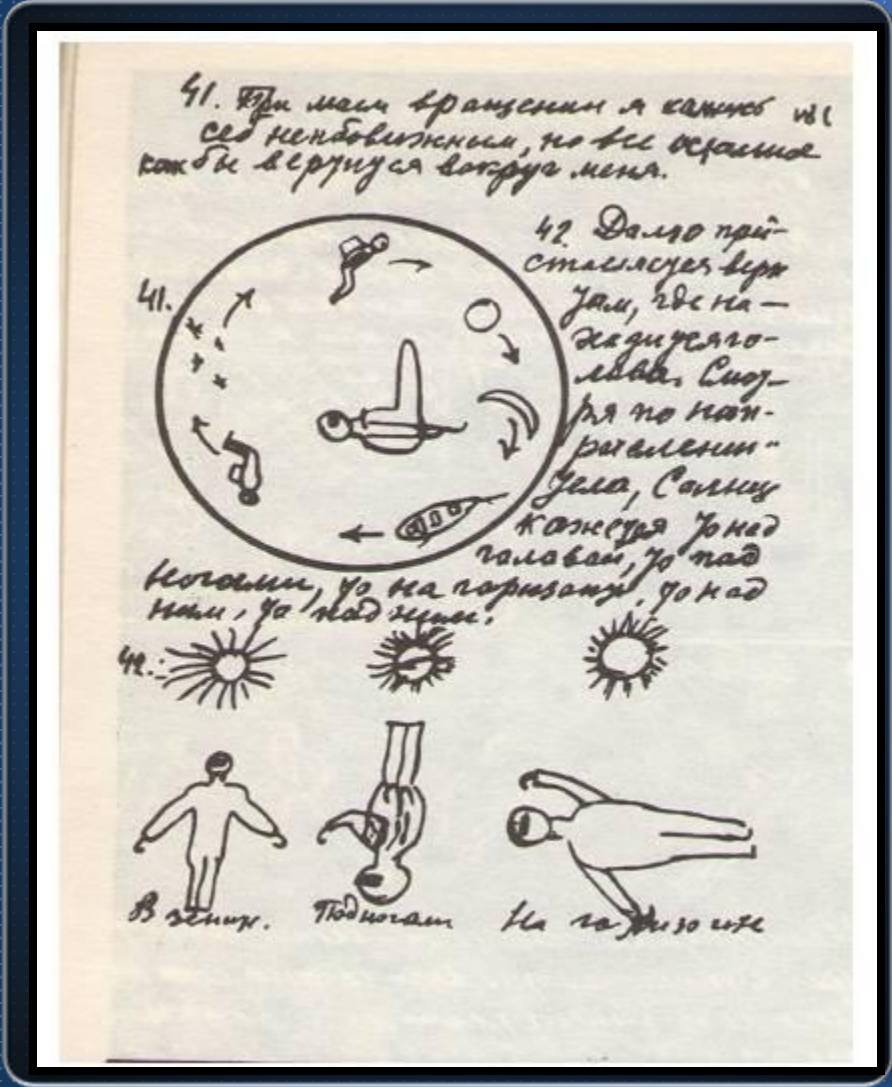 41. При моем вращении я кажусь
себе неподвижным, но все остальное
как бы вертится вокруг меня.
41.
42. Далее пред-
ставляется верх
там, где на-
ходится го-
лова. Смот-
ря по нап-
равлению
тела, Солнце
кажется то над
головой, то под
ногами, то на горизонте, то над
ним, то под ним.
42.
В зените. Под ногами На горизонте